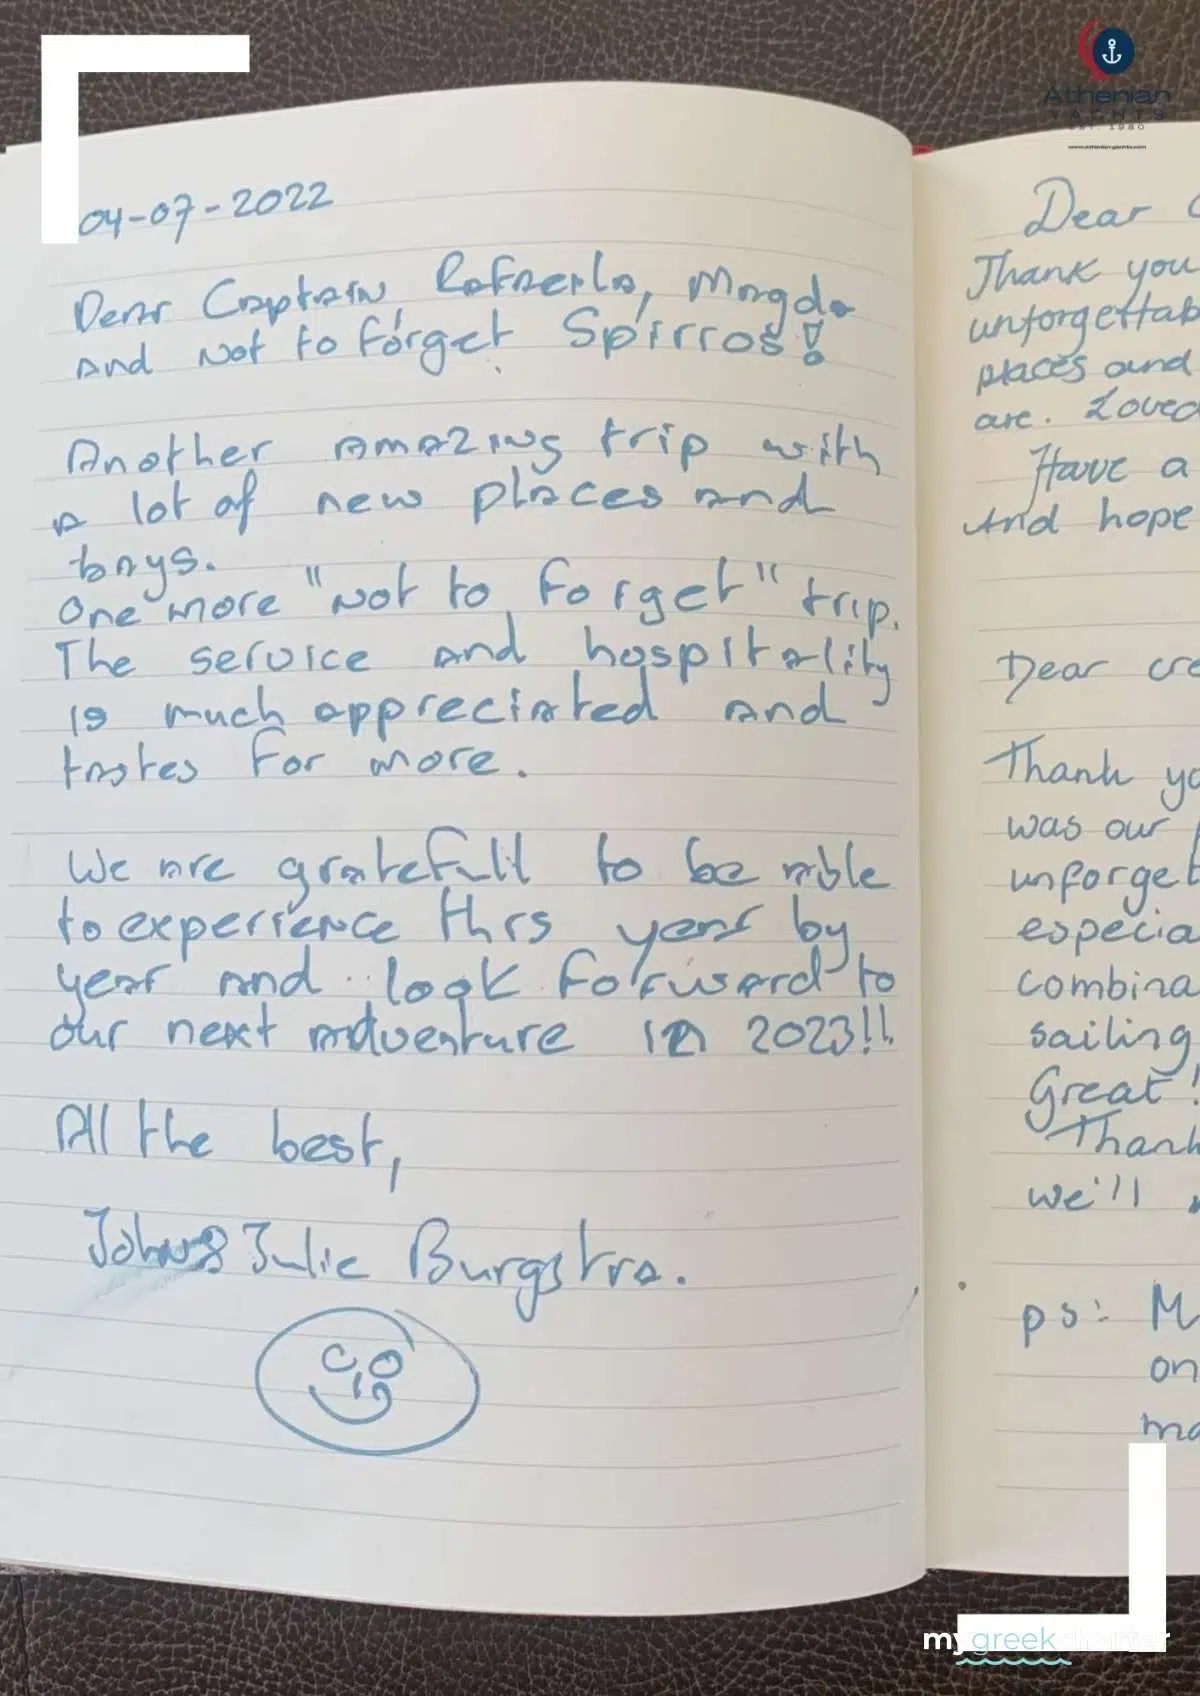 Athenian
YACHTS
EST. 1980
www.athenian-yachts.com
04-07-2022
Dear Captain, Rafaela, Magda
and not to forget Spirros!
Another amazing trip with
a lot of new places and
bays.
One more "not to forget" trip.
The service and hospitality
is much appreciated and
tastes for more.
We are gratefull to be able
to experience this year by
year and look forward to
our next adventure in 2023!!
All the best,
John & Julie Burgstra.
Dear
Thank you
unforgettab
places and
are. Loved
Have a
And hope
Dear cre
Thank yo
was our
unforget
especia
combina
sailing
Great!
Thank
we'll
ps: M
on
ma
mygreekcharter